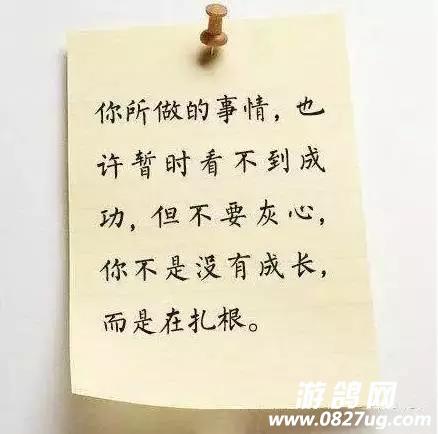 你所做的事情，也
许暂时看不到成
功，但不要灰心，
你不是没有成长，
而是在扎根。
游鸽网
www.0827ug.com